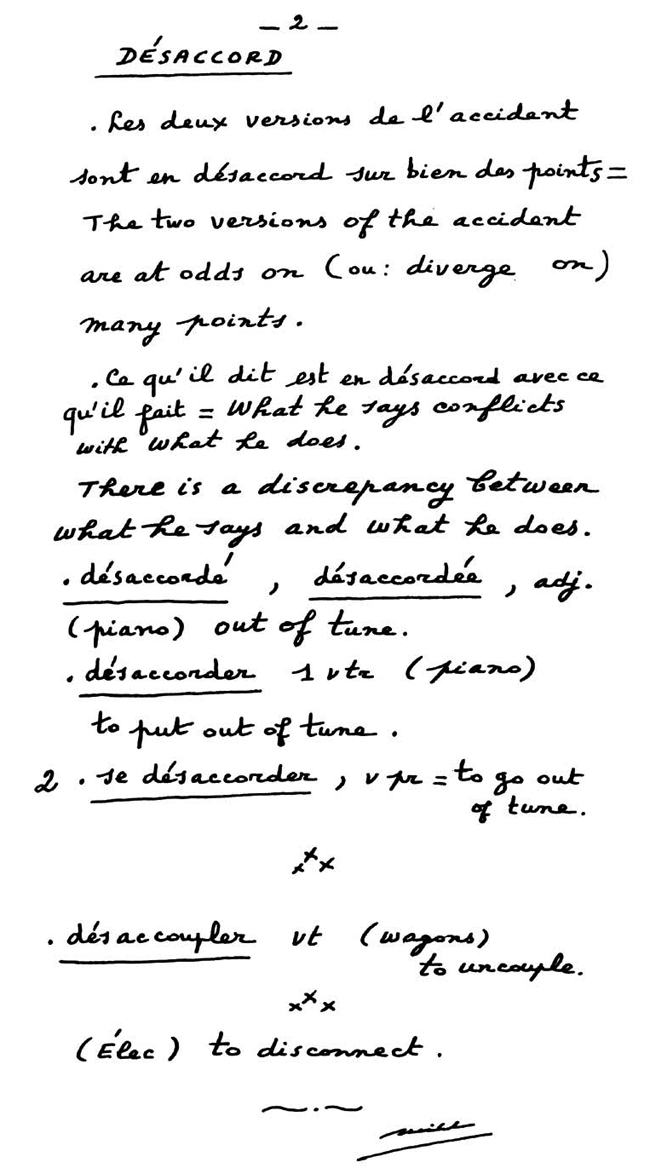 — 2 —
DÉSACCORD
. Les deux versions de l'accident
sont en désaccord sur bien des points =
The two versions of the accident
are at odds on (ou: diverge on)
many points.
. Ce qu'il dit est en désaccord avec ce
qu'il fait = What he says conflicts
with what he does.
There is a discrepancy between
what he says and what he does.
. désaccordé , désaccordée , adj.
(piano) out of tune.
. désaccorder 1 vtr (piano)
to put out of tune .
2 . se désaccorder , v pr = to go out
of tune.
xxx
. désaccoupler vt (wagons)
to uncouple.
xxx
(Élec) to disconnect .